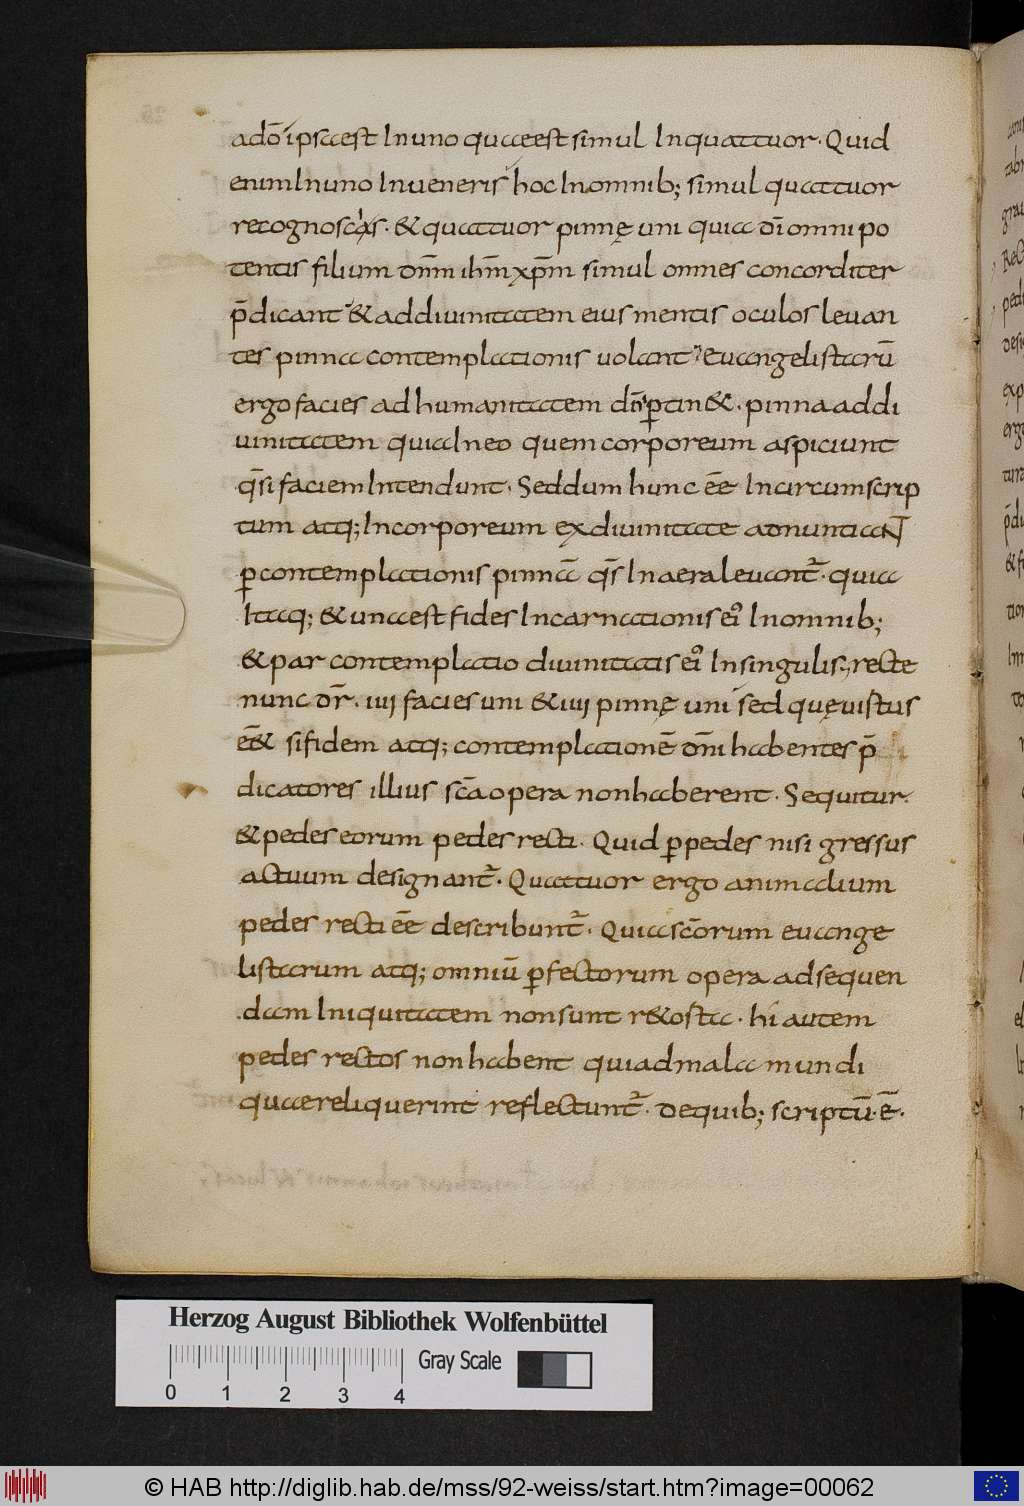 adō ipsa est In uno quae est simul In quattuor· Quid
enim In uno Inueneris hoc In omnib; simul quattuor
recognoscis· & quattuor pinnę uni quia dī omnipo
tentis filium dn̄m ihm̄ xp̄m simul omnes concorditer
p̄dicant & ad diuinitatem eius mentis oculos leuan
tes pinna contemplationis uolant Euangelistarū
ergo facies ad humanitatem dn̄i ꝑtin&· pinna ad di
uinitatem quia In eo quem corporeum aspiciunt
q̄si faciem Intendunt· Sed dum hunc ēē Incircumscrip
tum atq; Incorporeum ex diuinitate adnuntiaNT
ꝑ contemplationis pinnā q̄s In aera leuant᷑· quia
Itaq; & una est fides Incarnationis ei᷒ In omnib;
& par contemplatio diuinitatis ei᷒ In singulis; recte
nunc dr̄· iiii facies uni & iiii pinnę uni sed quę uistus
ē& si fidem atq; contemplationē dn̄i habentes p̄
dicatores illius scā opera non haberent· Sequitur·
& pedes eorum pedes recti· Quid ꝑ pedes nisi gressus
actuum designant᷑· Quattuor ergo animalium
pedes recti ēē describunt᷑· Quia scōrum euange
listarum atq; omniū ꝑfectorum opera ad sequen
dam Iniquitatem non sunt r&osta· hi autem
pedes rectos non habent qui ad mala mundi
quae reliquerint reflectunt᷑· de quib; scriptū·ē·
Herzog August Bibliothek Wolfenbüttel
Gray Scale
0 1 2 3 4
© HAB http://diglib.hab.de/mss/92-weiss/start.htm?image=00062